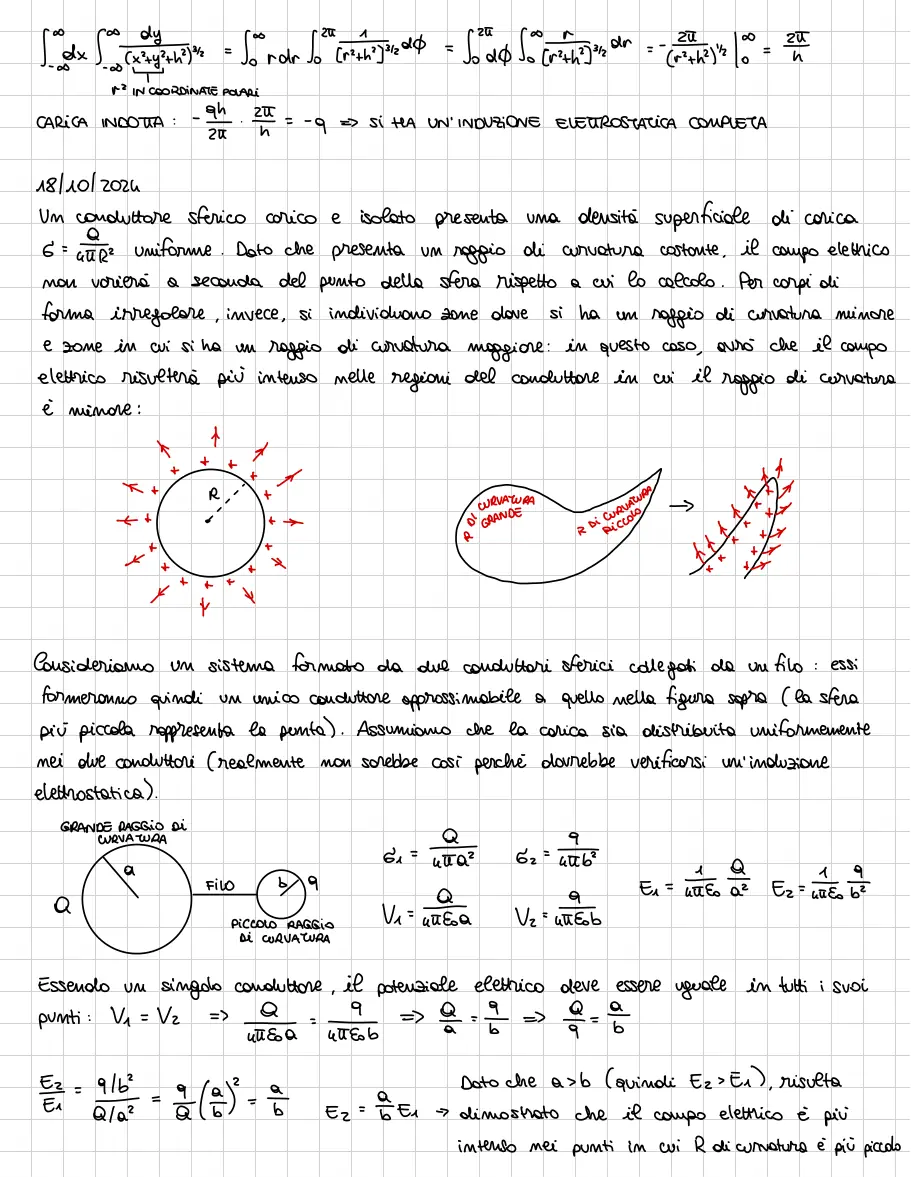 ∫_{-∞}^{∞} dx ∫_{-∞}^{∞} dy/(x²+y²+h²)^{3/2} = ∫_0^∞ r dr ∫_0^{2π} 1/[r²+h²]^{3/2} dϕ = ∫_0^{2π} dϕ ∫_0^∞ r/[r²+h²]^{3/2} dr = - 2π/(r²+h²)^{1/2} |_0^∞ = 2π/h
r² IN COORDINATE POLARI
CARICA INDOTTA : - qh/2π · 2π/h = -q ⇒ SI HA UN'INDUZIONE ELETTROSTATICA COMPLETA
18/10/2024
Un conduttore sferico carico e isolato presenta una densità superficiale di carica
σ = Q/4πR² uniforme. Dato che presenta un raggio di curvatura costante, il campo elettrico
non varierà a seconda del punto della sfera rispetto a cui lo calcolo. Per corpi di
forma irregolare, invece, si individuano zone dove si ha un raggio di curvatura minore
e zone in cui si ha un raggio di curvatura maggiore: in questo caso, avrò che il campo
elettrico risulterà più intenso nelle regioni del conduttore in cui il raggio di curvatura
è minore:
R
R DI CURVATURA
GRANDE
R DI CURVATURA
PICCOLO
Consideriamo un sistema formato da due conduttori sferici collegati da un filo : essi
formeranno quindi un unico conduttore approssimabile a quello nella figura sopra (la sfera
più piccola rappresenta la punta). Assumiamo che la carica sia distribuita uniformemente
nei due conduttori (realmente non sarebbe così perché dovrebbe verificarsi un'induzione
elettrostatica).
GRANDE RAGGIO DI
CURVATURA
a
Q
FILO
b
q
PICCOLO RAGGIO
DI CURVATURA
σ₁ = Q/4πa² σ₂ = q/4πb²
E₁ = 1/4πε₀ Q/a² E₂ = 1/4πε₀ q/b²
V₁ = Q/4πε₀a V₂ = q/4πε₀b
Essendo un singolo conduttore, il potenziale elettrico deve essere uguale in tutti i suoi
punti : V₁ = V₂ ⇒ Q/4πε₀a = q/4πε₀b ⇒ Q/a = q/b ⇒ Q/q = a/b
E₂/E₁ = q/b²/Q/a² = q/Q (a/b)² = a/b E₂ = a/b E₁ →
Dato che a>b (quindi E₂>E₁), risulta
dimostrato che il campo elettrico è più
intenso nei punti in cui R di curvatura è più piccolo